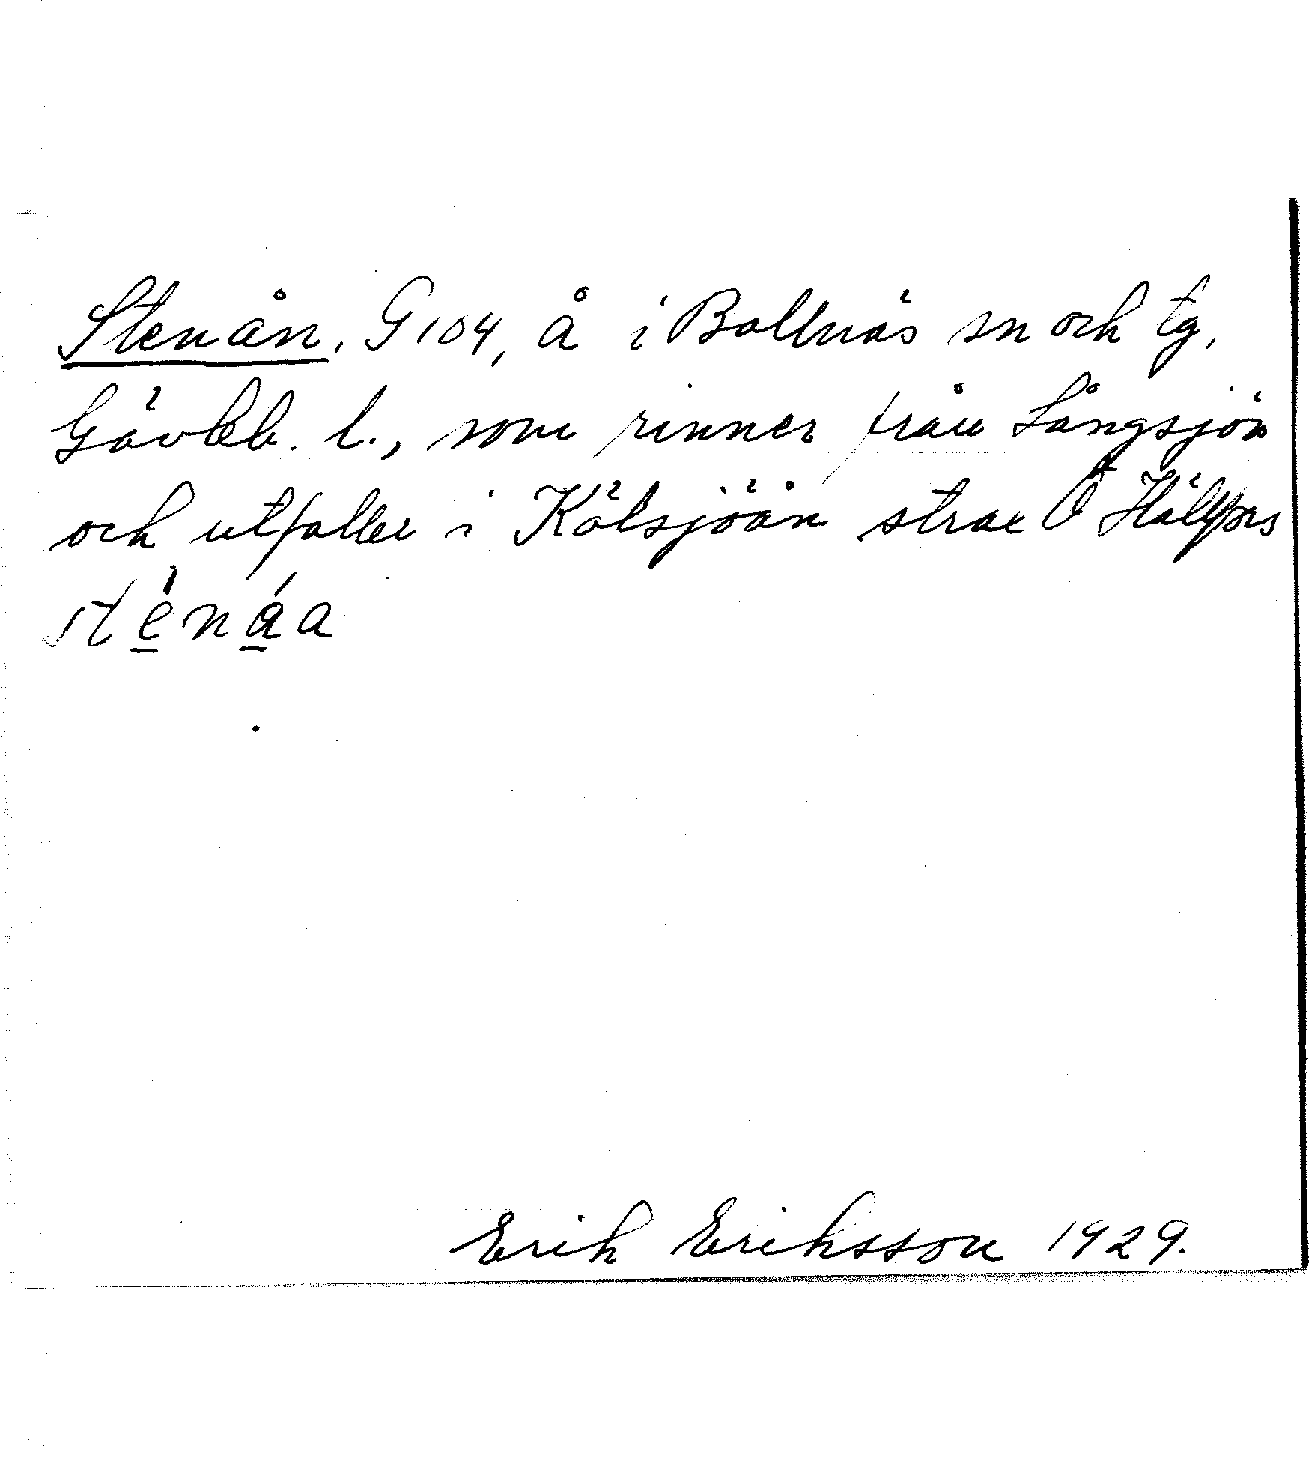 Stenån, G 104, å i Bollnäs sn och tg,
Gävleb. l., som rinner från Långsjön
och utfaller i Kölsjöån strax Ö Hälfors
sténáa
Erik Eriksson 1929.